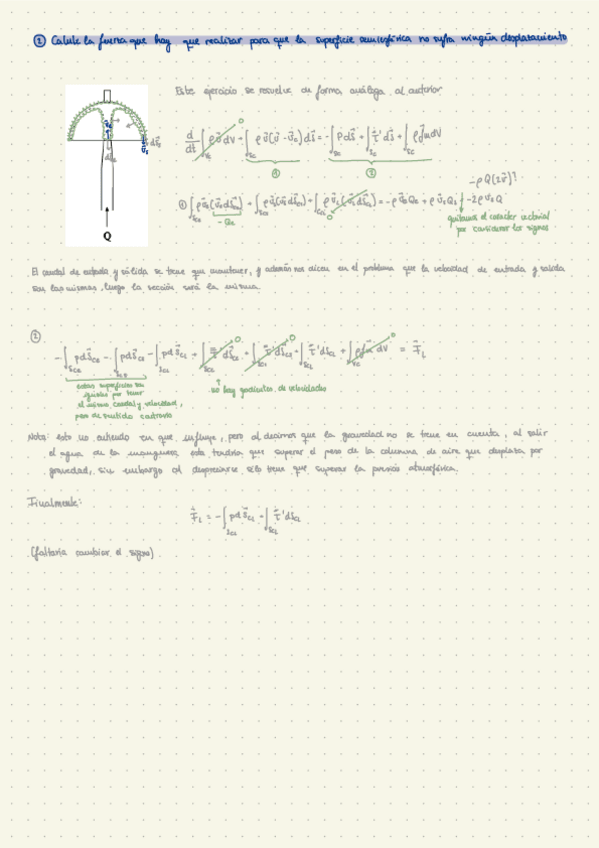 ② Calcule la fuerza que hay que realizar para que la superficie semiesférica no sufra ningún desplazamiento
Este ejercicio se resuelve de forma análoga al anterior
Q
d/dt ∫_{Vc} ρ v̄ dV + ∫_{Sc} ρ v̄ (v̄ - v̄c) ds̄ = -∫_{Sc} P ds̄ + ∫_{Sc} τ̄' ds̄ + ∫_{Vc} ρ f̄m dV
0
① ②
-ρQ(2v̄)?
quitamos el carácter vectorial
por considerar los signos
El caudal de entrada y salida se tiene que mantener, y además nos dicen en el problema que la velocidad de entrada y salida
son las mismas, luego la sección será la misma.
②
estas superficies son
iguales por tener
el mismo caudal y velocidad,
pero de sentido contrario
no hay gradientes de velocidades
Nota: esto no entiendo en que influye, pero al decirnos que la gravedad no se tiene en cuenta, al salir
el agua de la manguera, esta tendría que superar el peso de la columna de aire que desplaza por
gravedad, sin embargo al despreciarse sólo tiene que superar la presión atmosférica.
Finalmente:
F̄_L = -∫_{SCL} p ds̄_{CL} + ∫_{SCL} τ̄' ds̄_{CL}
(faltaría cambiar el signo)